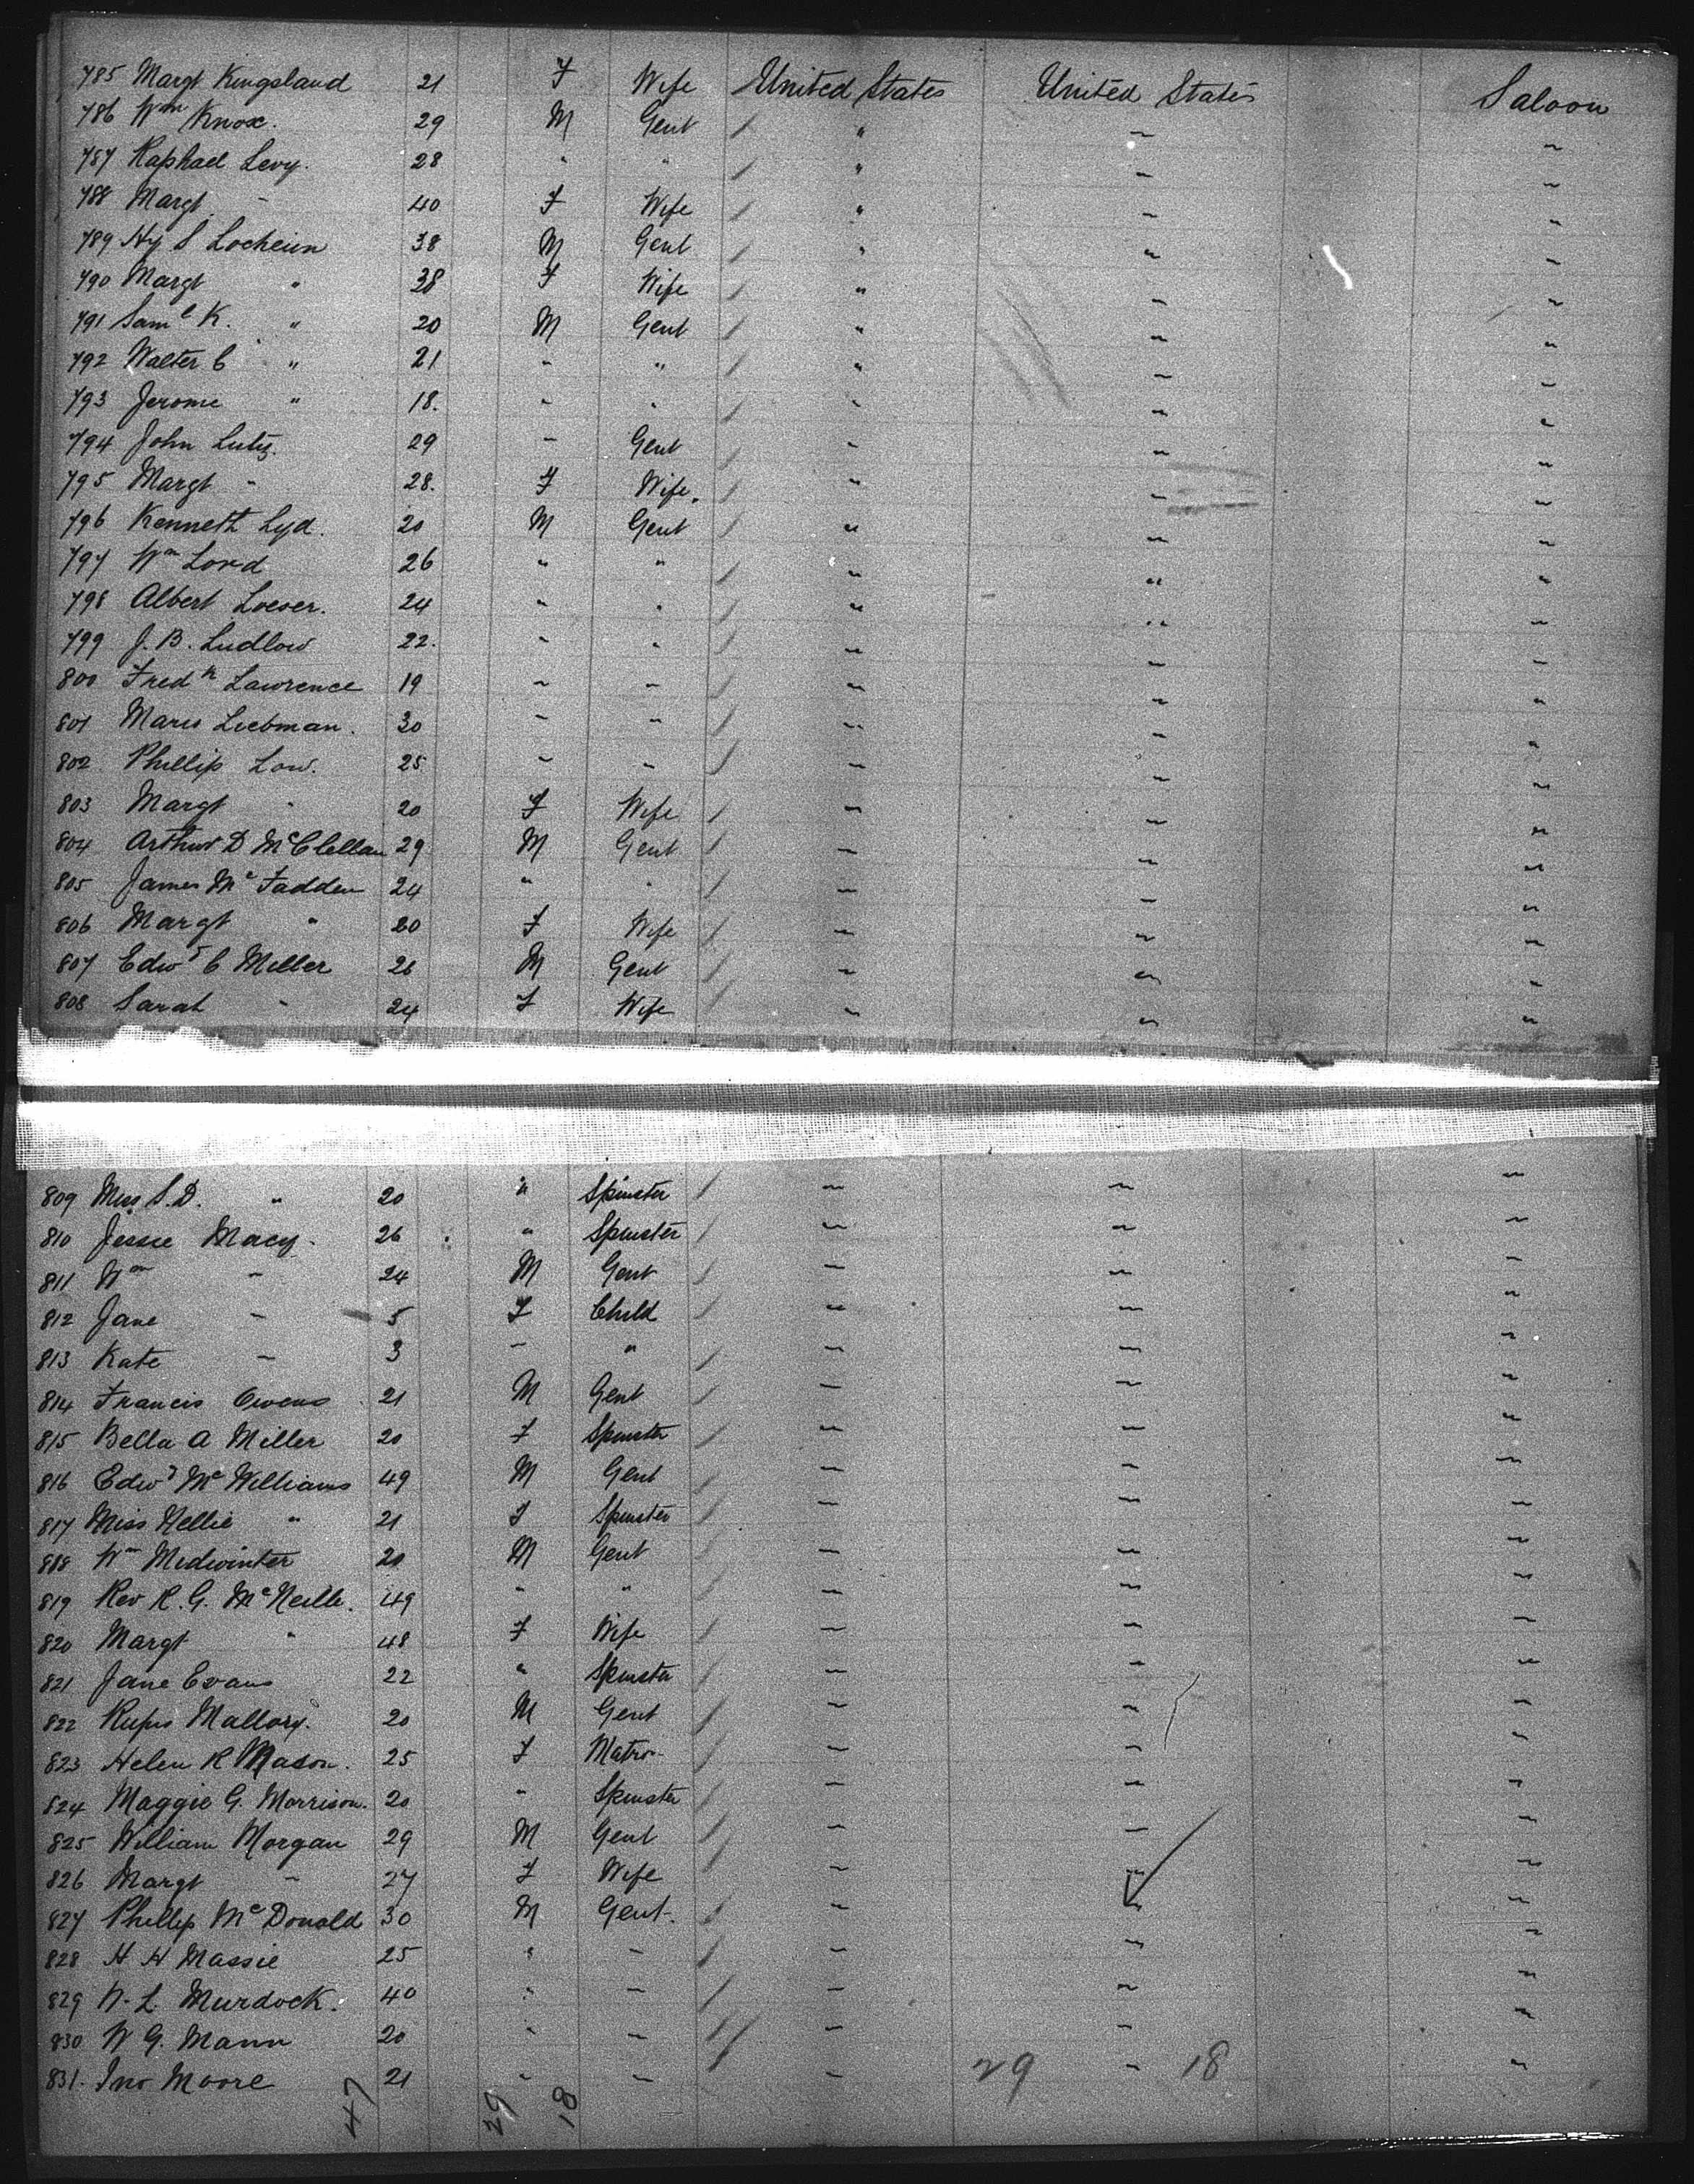 785 Margt Kingsland 21 F Wife United States United States Saloon
786 Wm Knox. 29 M Gent " " "
787 Raphael Levy. 28 " " " " "
788 Margt " 40 F Wife " " "
789 Hy S Locheim 38 M Gent " " "
790 Margt " 38 F Wife " " "
791 Saml K. " 20 M Gent " " "
792 Walter C " 21 " " " " "
793 Jerome " 18. " " " " "
794 John Lutz. 29 " Gent " " "
795 Margt " 28. F Wife. " " "
796 Kenneth Lyd. 20 M Gent " " "
797 Wm Lord 26 " " " " "
798 Albert Loeser. 24 " " " " "
799 J. B. Ludlow 22. " " " " "
800 Fredk Lawrence 19 " " " " "
801 Liebman. 30 " " " " "
802 Phillip Low. 25 " " " " "
803 Margt " 20 F Wife " " "
804 Arthur D McClellan 29 M Gent " " "
805 James McFadden 24 " " " " "
806 Margt " 20 F Wife " " "
807 Edwd C Miller 26 M Gent " " "
808 Sarah " 24 F Wife " " "
809 Miss S. D. " 20 " Spinster " " "
810 Jessie Macy. 26 " Spinster " " "
811 Wm " 24 M Gent " " "
812 Jane " 5 F Child " " "
813 Kate " 3 " " " " "
814 Francis Owens 21 M Gent " " "
815 Bella A Miller 20 F Spinster " " "
816 Edwd McWilliams 49 M Gent " " "
817 Miss Nellie " 21 F Spinster " " "
818 Wm Midwinter 20 M Gent " " "
819 Rev R. G. McNeille. 49 " " " " "
820 Margt " 48 F Wife " " "
821 Jane Evans 22 " Spinster " " "
822 Rufus Mallory. 20 M Gent " " "
823 Helen R Mason. 25 F Matron " " "
824 Maggie G. Morrison. 20 " Spinster " " "
825 William Morgan 29 M Gent " " "
826 Margt " 27 F Wife " " "
827 Phillip McDonald 30 M Gent. " " "
828 H H Massie 25 " " " " "
829 W. L. Murdock. 40 " " " " "
830 W G. Mann 20 " " " " "
831. Jno Moore 21 " " " 29 " 18 "
47 29 18